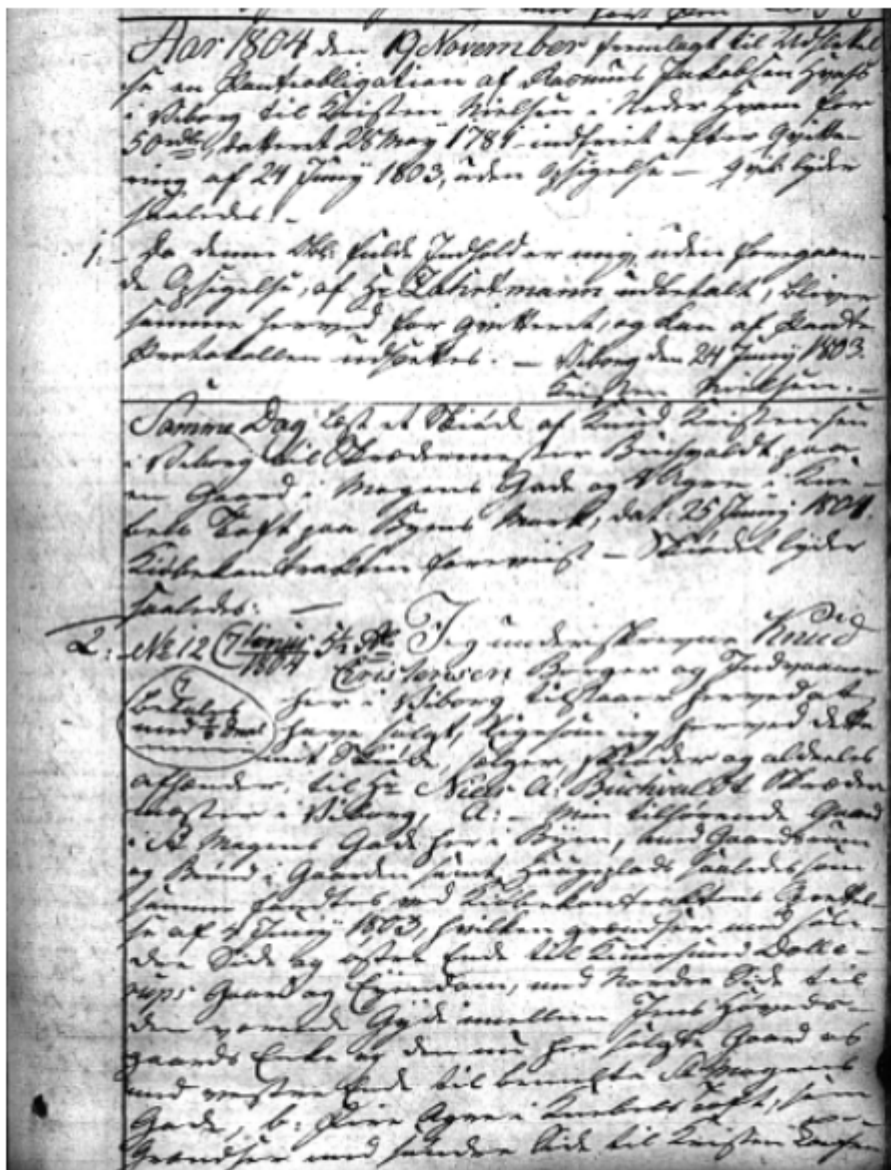 Aar 1804 den 19 November fremlagt til Udslettel-
se en Pantobligation af Rasmus Jakobsen
i Viborg til Kristen Nielsen i Neder Hvam for
50 rdlr, datteret 28 Maÿ 1781 indfriet efter Qvitte-
ring af 24 Junÿ 1803, uden Opsigelse - Qvit: lyder
saaledes: -
1. - Da denne Obl: fulde Indhold er mig, uden foregaaen-
de Opsigelse, af Hr: Zahrtmann udbetalt, bliver
samme herved for qvitteret, og kan af Pante
Protokollen udslettes. - Viborg den 24 Junÿ 1803.
Kristen Nielsen. -
Samme Dag læst et Skiøde af Knud Kristensen
i Viborg til Skrædermester Buchvaldt paa
en Gaard i Mogens Gade og 4 Agre i Kne-
bels Toft paa Byens Mark, dat: 25 Junÿ 1804.
Kiøbekontrakten foreviist - Skiødet lyder
saaledes: -
2: No 12 1804 Jeg underskrevne Knud
Cristensen Borger og Indvaaner
her i Viborg tilstaaer herved at
betales
med
have solgt, ligesom jeg herved dette
mit Skiøde, sælger, skiøder og aldeles
afhænder, til Hr: A: Buchvaldt Skræder
mester i Viborg, A: - Min tilhørende Gaard
i St Mogens Gade her i Byen, med Gaardsrum
og Brønd i Gaarden samt Haugeplads saaledes som
samme fandtes ved Kiøbekontraktens Oprettel-
se af Junÿ 1803, hvilken grændser med søn-
dre Side og østre Ende til Dolle-
rups Gaard og Eÿendom, med Nordre Side til
den værende Gÿde imellem Jens Hoveds-
gaards Enke og den nu her solgte Gaard og
med vestre Ende til bemelte St Mogens
Gade, b: Fire Agre i Knebels Toft, som
Grændser med søndre Side til Kristen